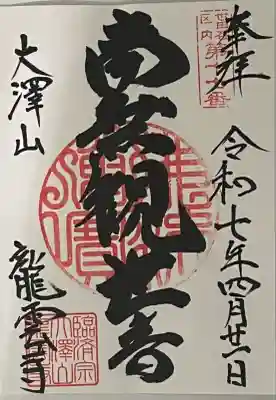 奉拝
令和七年四月廿一日
南無観世音
大澤山
龍雲寺
臨済宗
大澤山